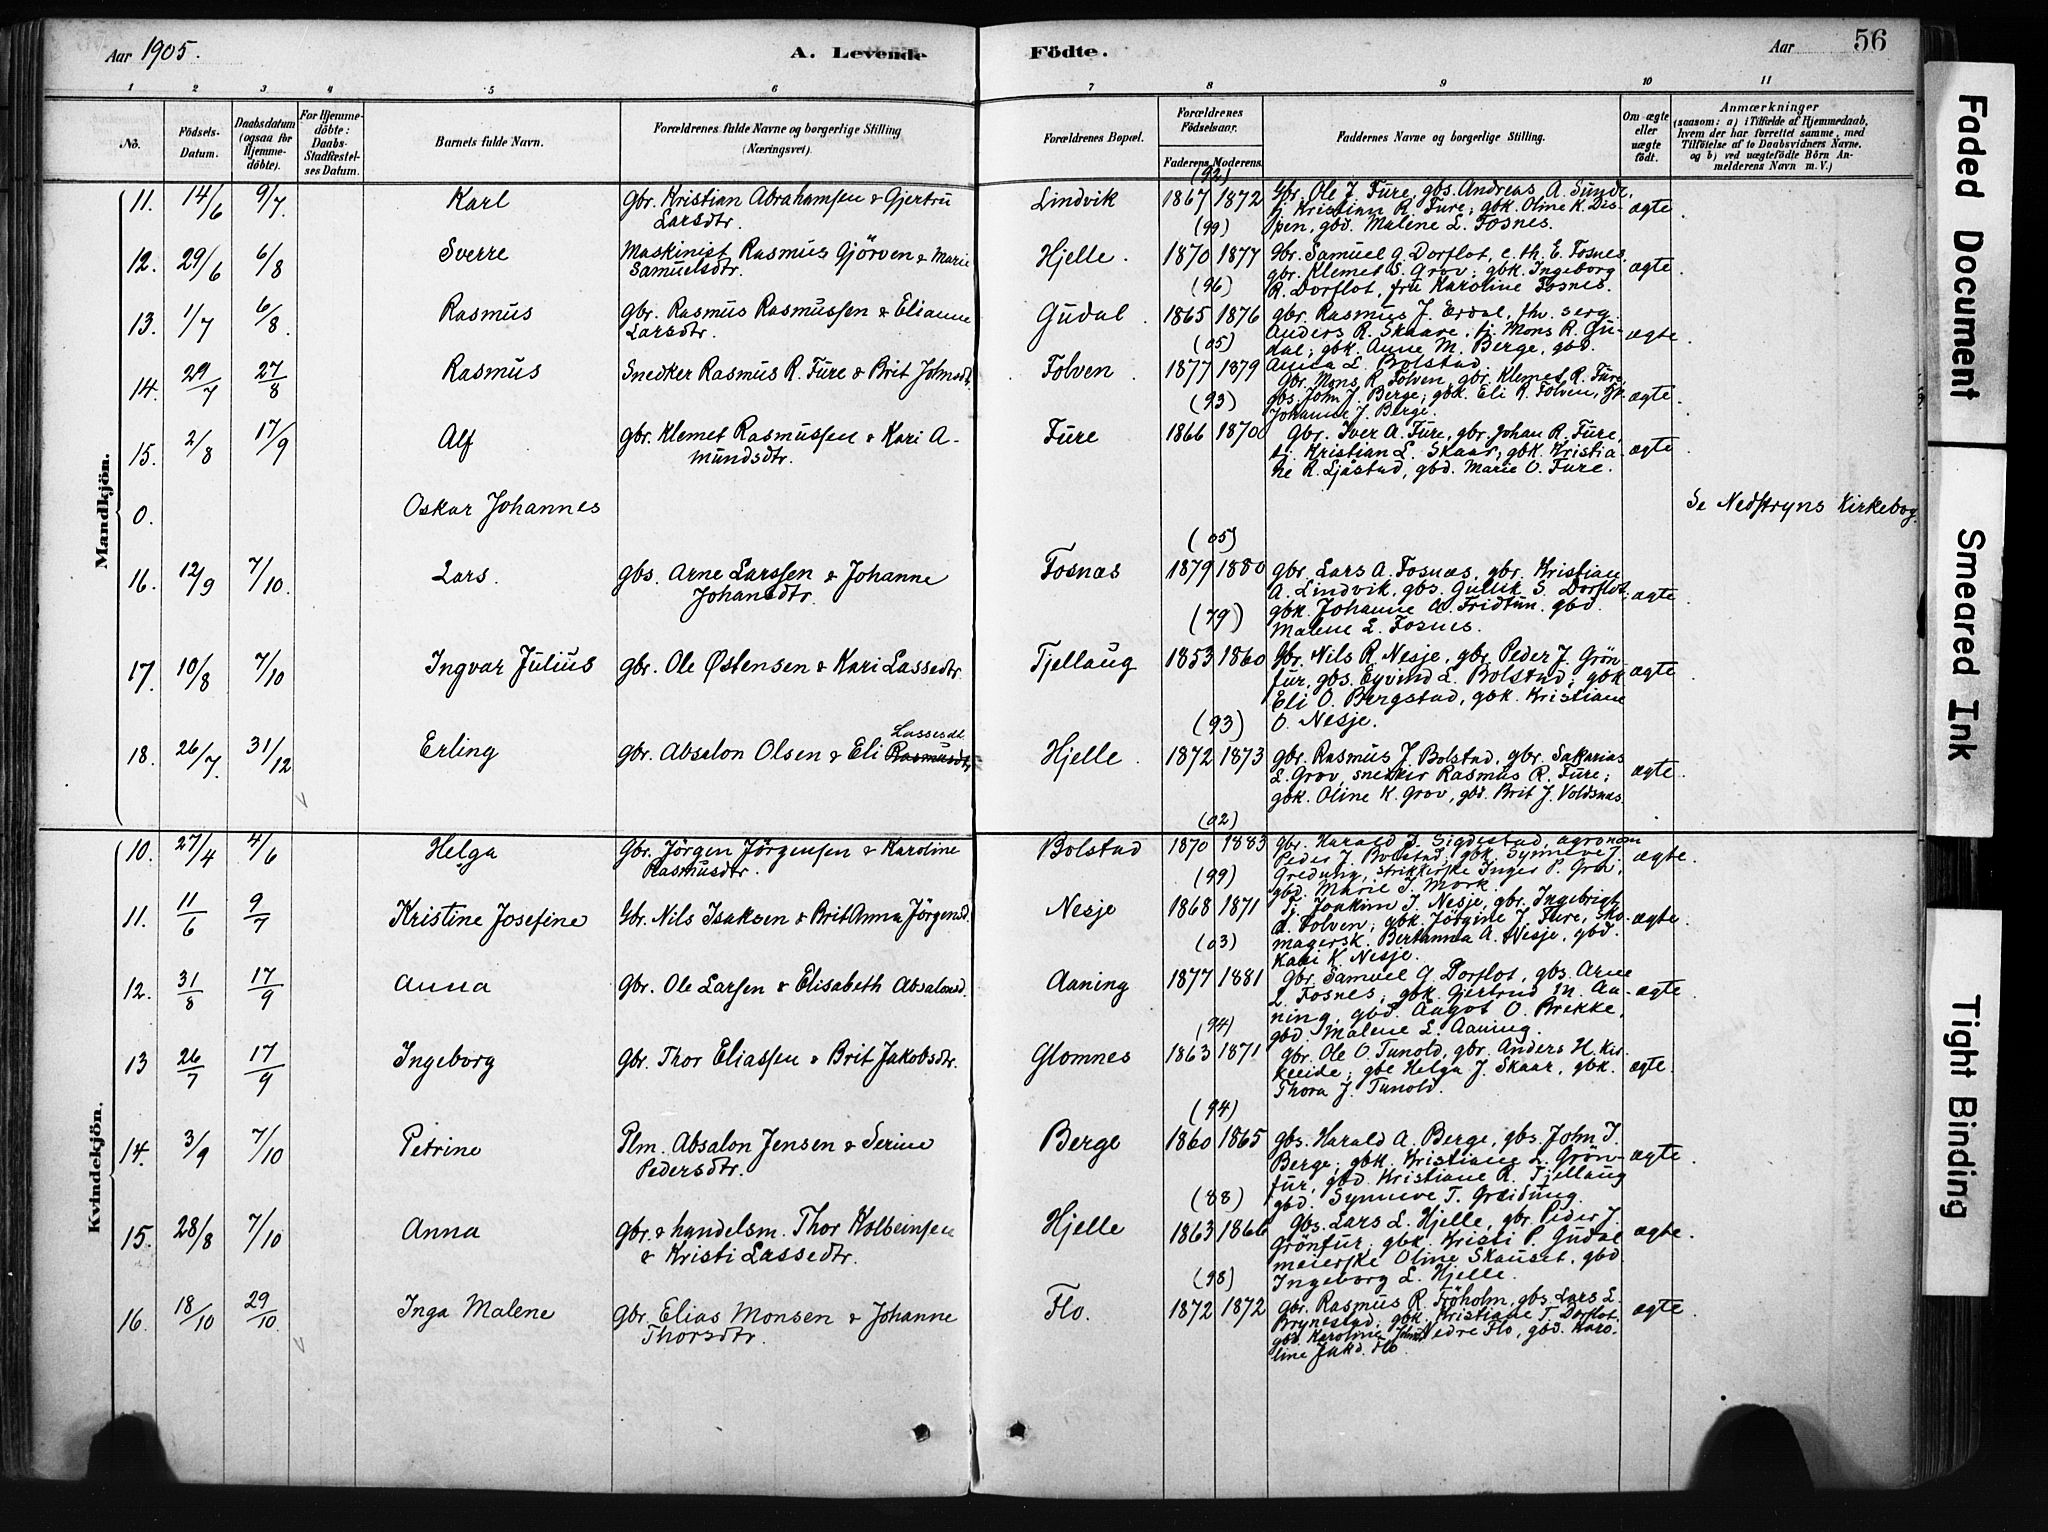 Aar 1905.
A. Levende
Födte.
Aar
56
1 2 3 4 5 6 7 8 9 10 11
No.
Födsels-
Datum.
Daabsdatum
(ogsaa for
Hjemme-
döbte).
For Hjemme-
döbte:
Daabs-
Stadfæstel-
ses Datum.
Barnets fulde Navn.
Forældrenes fulde Navne og borgerlige Stilling
(Næringsvei).
Forældrenes Bopæl.
Forældrenes
Födselsaar.
Faderens. Moderens.
Faddernes Navne og borgerlige Stilling.
Om ægte
eller
uægte
født.
Anmærkninger
(saasom: a) i Tilfælde af Hjemmedaab,
hvem der har forrettet samme, med
Tilföielse af to Daabsvidners Navne.
og b) ved uægtefödte Börn An-
melderens Navn m. V.)
Mandkjön.
(92)
11. 14/6 9/7. Karl gbr. Kristian Abrahamsen & Gjertru Lindvik 1867 1872 Gbr. Ole J. Fure, gbs. Andreas A. Sunde, ægte.
Larsdtr.
fj. Kristian R. Fure; gbk. Oline K. Dis-
pen, gbd. Malene L. Fosnes.
(99)
12. 29/6 6/8 Sverre Maskinist Rasmus Gjörven & Marie Hjelle. 1870 1877 Gbr. Samuel G. Dorflot, c. th. E. Fosnes, ægte.
Samuelsdtr.
gbr. Klemet S. Grov; gbk. Ingeborg
R. Dorflot, fru Karoline Fosnes.
(96)
13. 1/7 6/8. Rasmus gbr. Rasmus Rasmussen & Elianne Gudal. 1865 1876 gbr. Rasmus J. Erdal, fhv. serg. ægte.
Larsdtr.
Anders R. Skaare, fj. Mons R. Gu-
dal; gbk. Anne M. Berge, gbd.
Anna L. Bolstad.
(05)
14. 29/7 27/8 Rasmus Snedker Rasmus R. Fure & Brit Johnsdt. Folven. 1877 1879 Gbr. Mons R. Folven, gbr. Klemet R. Fure, ægte.
gbs. John J. Berge; gbk. Eli R. Folven,
Johanne J. Berge.
(93)
15. 2/8 17/9 Alf gbr. Klemet Rasmussen & Kari A- Fure 1866 1870 gbr. Iver A. Fure, gbr. Johan R. Fure, ægte.
mundsdtr.
fj. Kristian L. Skaar; gbk. Kristia-
ne R. Ljåstad, gbd. Marie O. Fure.
0. Oskar Johannes Se Nedstryns Kirkebog.
(05)
16. 12/9 7/10. Lars. gbs. Arne Larssen & Johanne Fosnæs 1879 1880 gbr. Lars A. Fosnæs, gbr. Kristian ægte.
Johansdtr.
A. Lindvik, gbs. Gullik S. Dorflot;
gbk. Johanne A. Fridtun, gbd.
Malene L. Fosnes.
(79)
17. 10/8 7/10 Ingvar Julius gbr. Ole Østensen & Kari Lassedtr. Tjellaug 1853 1860 Gbr. Nils R. Nesje, gbr. Peder J. Grön- ægte.
fur, gbs. Eyvind L. Bolstad; gbk
Eli O. Bergstad, gbk. Kristiane
O. Nesje.
(93)
Lassesdt.
18. 26/7. 31/12 Erling gbr. Absalon Olsen & Eli Rasmusdtr. Hjelle. 1872 1873 gbr. Rasmus J. Bolstad, gbr. Sakarias ægte.
L. Grov, snekker Rasmus R. Fure;
gbk. Oline K. Grov, gbd. Brit J. Voldsnæs.
Kvindekjön.
(02)
10. 27/4 4/6 Helga Gbr. Jörgen Jörgensen & Karoline Bolstad 1870 1883 gbr. Harald J. Sigdestad, agronom ægte.
Rasmusdtr.
Peder J. Bolstad; gbk. Synneve J.
Gredung, strikkerske Inger P. Grov,
gbd. Marie J. Mork.
(99)
11. 11/6 9/7 Kristine Josefine Gbr. Nils Isaksen & Brit Anna Jörgensd. Nesje 1868 1871 Fj. Joakim I. Nesje, gbr. Ingebrigt ægte.
A. Folven; gbk. Jörgine J. Fure, sko-
magersk. Bertanna A. Nesje, gbd.
Kari K. Nesje.
(03)
12. 31/8 17/9 Anna Gbr. Ole Larsen & Elisabeth Absalonsd. Aaning 1877 1881 Gbr. Samuel G. Dorflot, gbs. Arne ægte.
L. Fosnes; gbk. Gjertrud M. Aa-
ning, gbd. Aagot O. Brekke,
gbd. Malene L. Aaning.
(94)
13 26/7 17/9 Ingeborg Gbr. Thor Eliassen & Brit Jakobsdtr. Glomnes 1863 1871 gbr. Ole O. Tunold, gbr. Anders H. Kir- ægte.
keeide; gbe Helga J. Skaar, gbk.
Thora J. Tunold.
(94)
14. 3/9 7/10 Petrine Plm. Absalon Jensen & Serine Berge 1860 1865 gbs. Harald A. Berge, gbs. John J. ægte.
Pedersdtr.
Berge; gbk. Kristiane L. Grön-
fur, gbd. Kristiane R. Tjellaug
gbd. Synneve T. Greidung.
(88)
15. 28/8 7/10 Anna Gbr. & handelsm. Thor Kolbeinsen Hjelle 1863 1866 Gbs. Lars L. Hjelle, gbr. Peder J. ægte.
& Kristi Lassedtr.
Grönfur; gbk. Kristi P. Gudal
meierske Oline Skauset, gbd
Ingeborg L. Hjelle.
(98)
16. 18/10 29/10. Inga Malene Gbr. Elias Monsen & Johanne Flo. 1872 1872 Gbr. Rasmus R. Tröholm, gbs. Lars L. ægte.
Thorsdtr.
Brynestad; gbk. Kristiane T. Dorflot,
gbd. Karoline Johns. Nedre Flo, gbd. Karo-
line Jakd. Flo.
Faded Document
Smeared Ink
Tight Binding